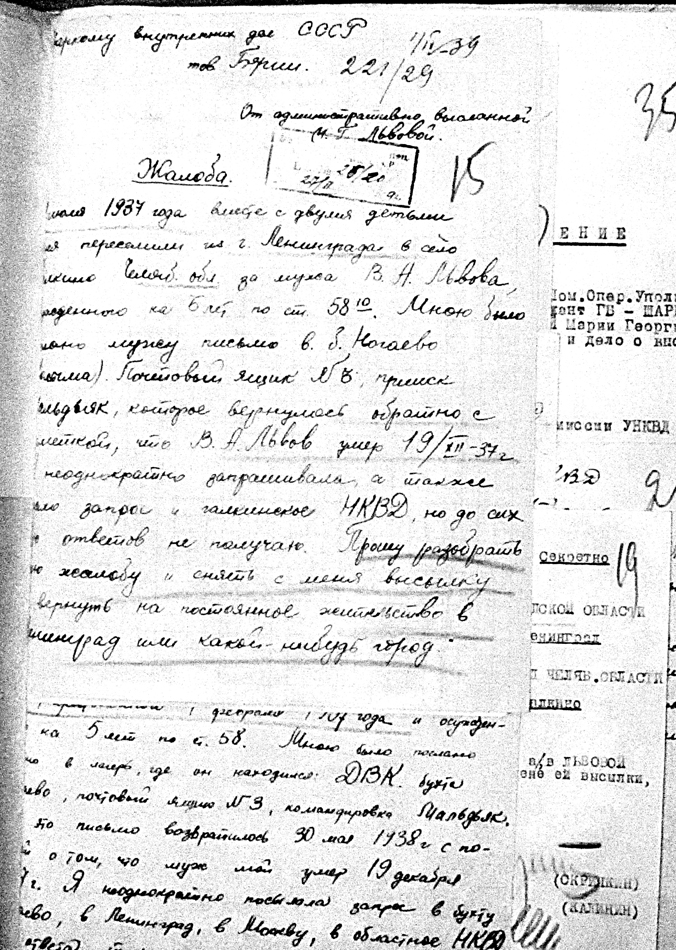 внутренних дел СССР
тов Берии.
1/IV-39
221/29
От административно высланной
М. Г. Львовой.
27/II 28/20
15
35
Жалоба.
июля 1937 года вместе с двумя детьми
переселили из г. Ленинграда в село
Челяб. обл. за мужа В. А. Львова,
на 5 лет по ст. 58¹⁰. Мною было
мужу письмо в б. Ногаево
Почтовый ящик №3, прииск
льдьяк, которое вернулось обратно с
меткой, что В. А. Львов умер 19/XII-37 г.
неоднократно запрашивала, а также
запрос и галкинское НКВД, но до сих
ответов не получаю. Прошу разобрать
жалобу и снять с меня высылку
вернуть на постоянное жительство в
нинград или какой-нибудь город.
февраля года и осужден-
на 5 лет по ст. 58. Мною было послано
в лагерь, где он находился: ДВК. бухта
ево, почтовый ящик №3, командировка Мальдьяк.
то письмо возвратилось 30 мая 1938 г с по-
о том, что муж мой умер 19 декабря
7 г. Я неоднократно посылала запрос в бухту
ево, в Ленинград, в Москву, в областное НКВД
Е Н И Е
Пом.Опер.Упол
ГБ - ШАР
Марии Георги
и дело о выс
миссии УНКВД
ВД
2
Секретно
19
ДСКОЙ ОБЛАСТИ
енинград
ЧЕЛЯБ.ОБЛАСТИ
алкино
а/в ЛЬВОВОЙ
ене ей высылки,
(СКРИПКИН)
(КАЛИНИН)